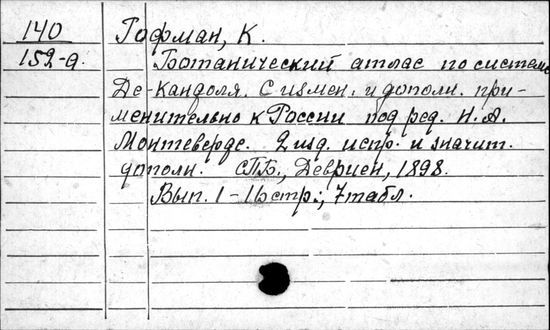 140 Гофман, К.
152-а. Ботанический атлас по системе
Де-Кандоля. С измен. и дополн. при-
менительно к России под ред. Н. А.
Монтеверде. 2 изд. испр. и значит.
дополн. СПБ., Девриен, 1898.
Вып. 1 - 16 стр.; 7 табл.